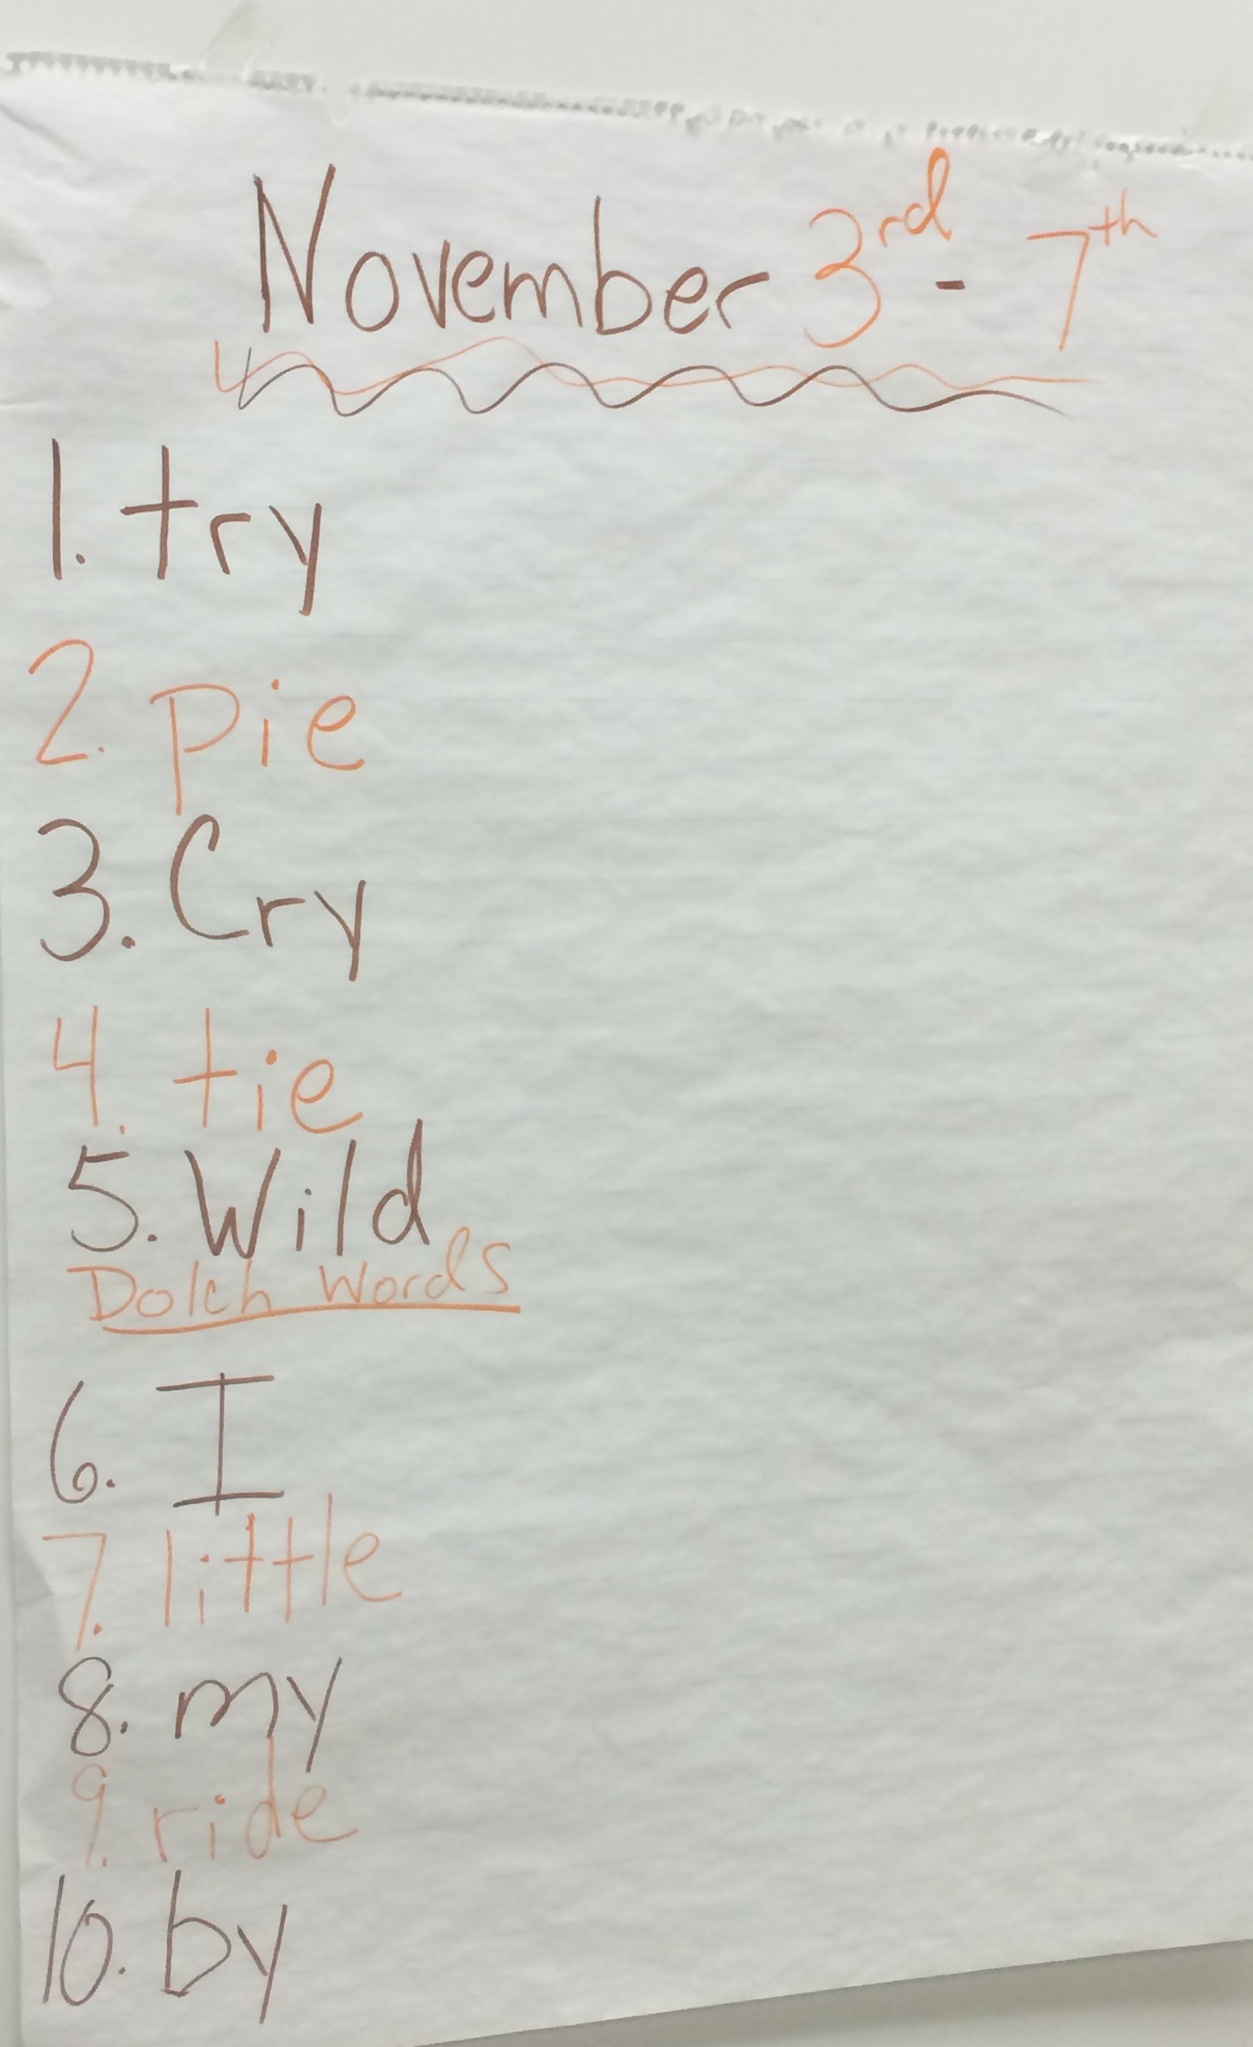 November 3rd - 7th
1. try
2. pie
3. Cry
4. tie
5. Wild
Dolch Words
6. I
7. little
8. my
9. ride
10. by